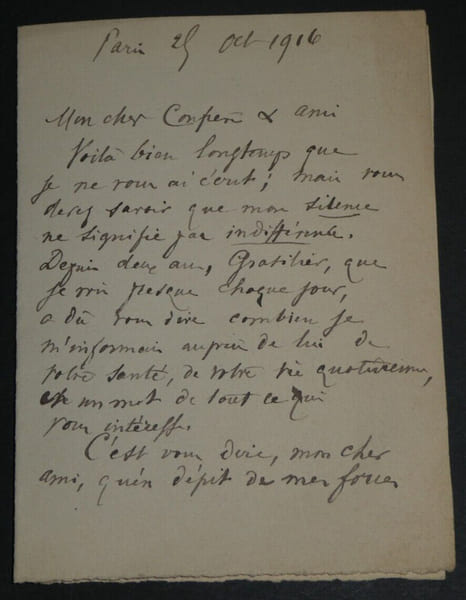 Paris 25 Oct 1916
Mon cher Confrère & ami
Voilà bien longtemps que
je ne vous ai écrit ; mais vous
devez savoir que mon silence
ne signifie pas indifférence.
Depuis deux ans, Gratilier, que
je vois presque chaque jour,
a dû vous dire combien je
m'informais auprès de lui de
votre santé, de votre vie quotidienne,
en un mot de tout ce qui
vous intéresse.
C'est vous dire, mon cher
ami, qu'en dépit de mes